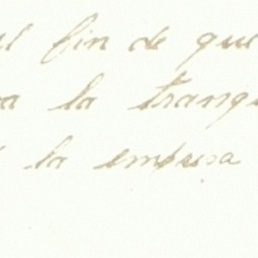 al fin de que
la tranq
la empresa